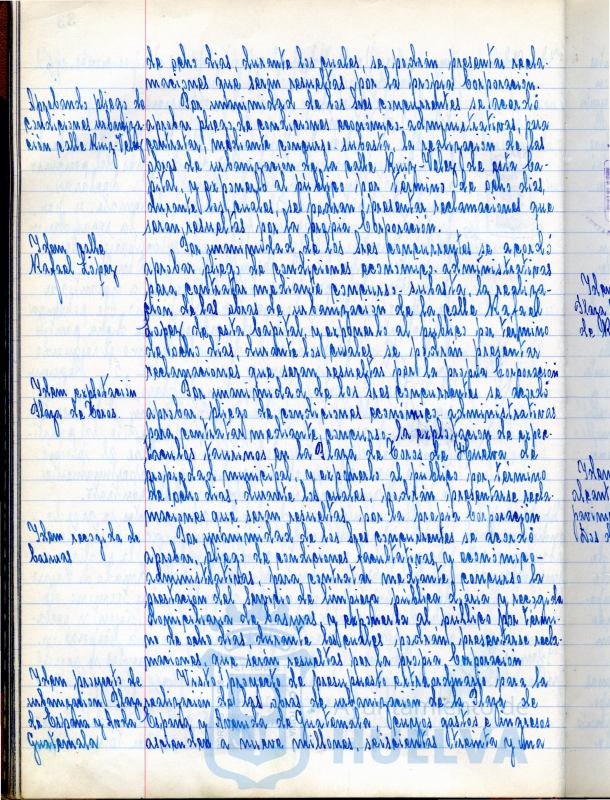 de ocho dias, durante los cuales, se podrán presentar recla-
maciones que serán resueltas por la propia Corporación.
Aprobando pliego de
condiciones urbaniza-
ción calle Ruiz-Velez
Por unanimidad de los tres concurrentes se acordó
aprobar pliego de condiciones económico-administrativas para
contratar, mediante concurso-subasta, la realización de las
obras de urbanización de la calle Ruiz-Velez de esta Ca-
pital, y exponerlo al público por término de ocho dias,
durante los cuales, se podrán presentar reclamaciones que
serán resueltas por la propia Corporación.
Idem calle
Rafael López
Por unanimidad de los tres concurrentes se acordó
aprobar pliego de condiciones económico-administrativas
para contratar mediante concurso-subasta, la realiza-
ción de las obras de urbanización de la calle Rafael
López de esta Capital, y exponerlo al público por término
de ocho dias, durante los cuales se podrán presentar
reclamaciones que serán resueltas por la propia Corporación
Idem explotación
Plaza de Toros.
Por unanimidad de los tres concurrentes se acordó
aprobar pliego de condiciones económico-administrativas
para contratar mediante concurso, la explotación de espec-
táculos taurinos en la Plaza de Toros de Huelva de
propiedad municipal, y exponerlo al público por término
de ocho dias, durante los cuales, podrán presentarse recla-
maciones que serán resueltas por la propia Corporación
Idem recogida de
basuras
Por unanimidad de los tres concurrentes se acordó
aprobar, pliego de condiciones facultativas y económico-
administrativas, para contratar mediante concurso la
prestación del servicio de limpieza pública diaria y recogida
domiciliaria de basuras, y exponerlo al público por térmi-
no de ocho dias, durante los cuales podrán presentarse recla-
maciones que serán resueltas por la propia Corporación
Idem proyecto de
urbanización Plaza
de España y Avda
Guatemala
Visto proyecto de presupuesto extraordinario para la
realización de las obras de urbanización de la Plaza de
España, y Avenida de Guatemala, cuyos gastos e ingresos
ascienden a nueve millones, seiscientas treinta y una
Idem
Plaza
de
Idem
HUELVA